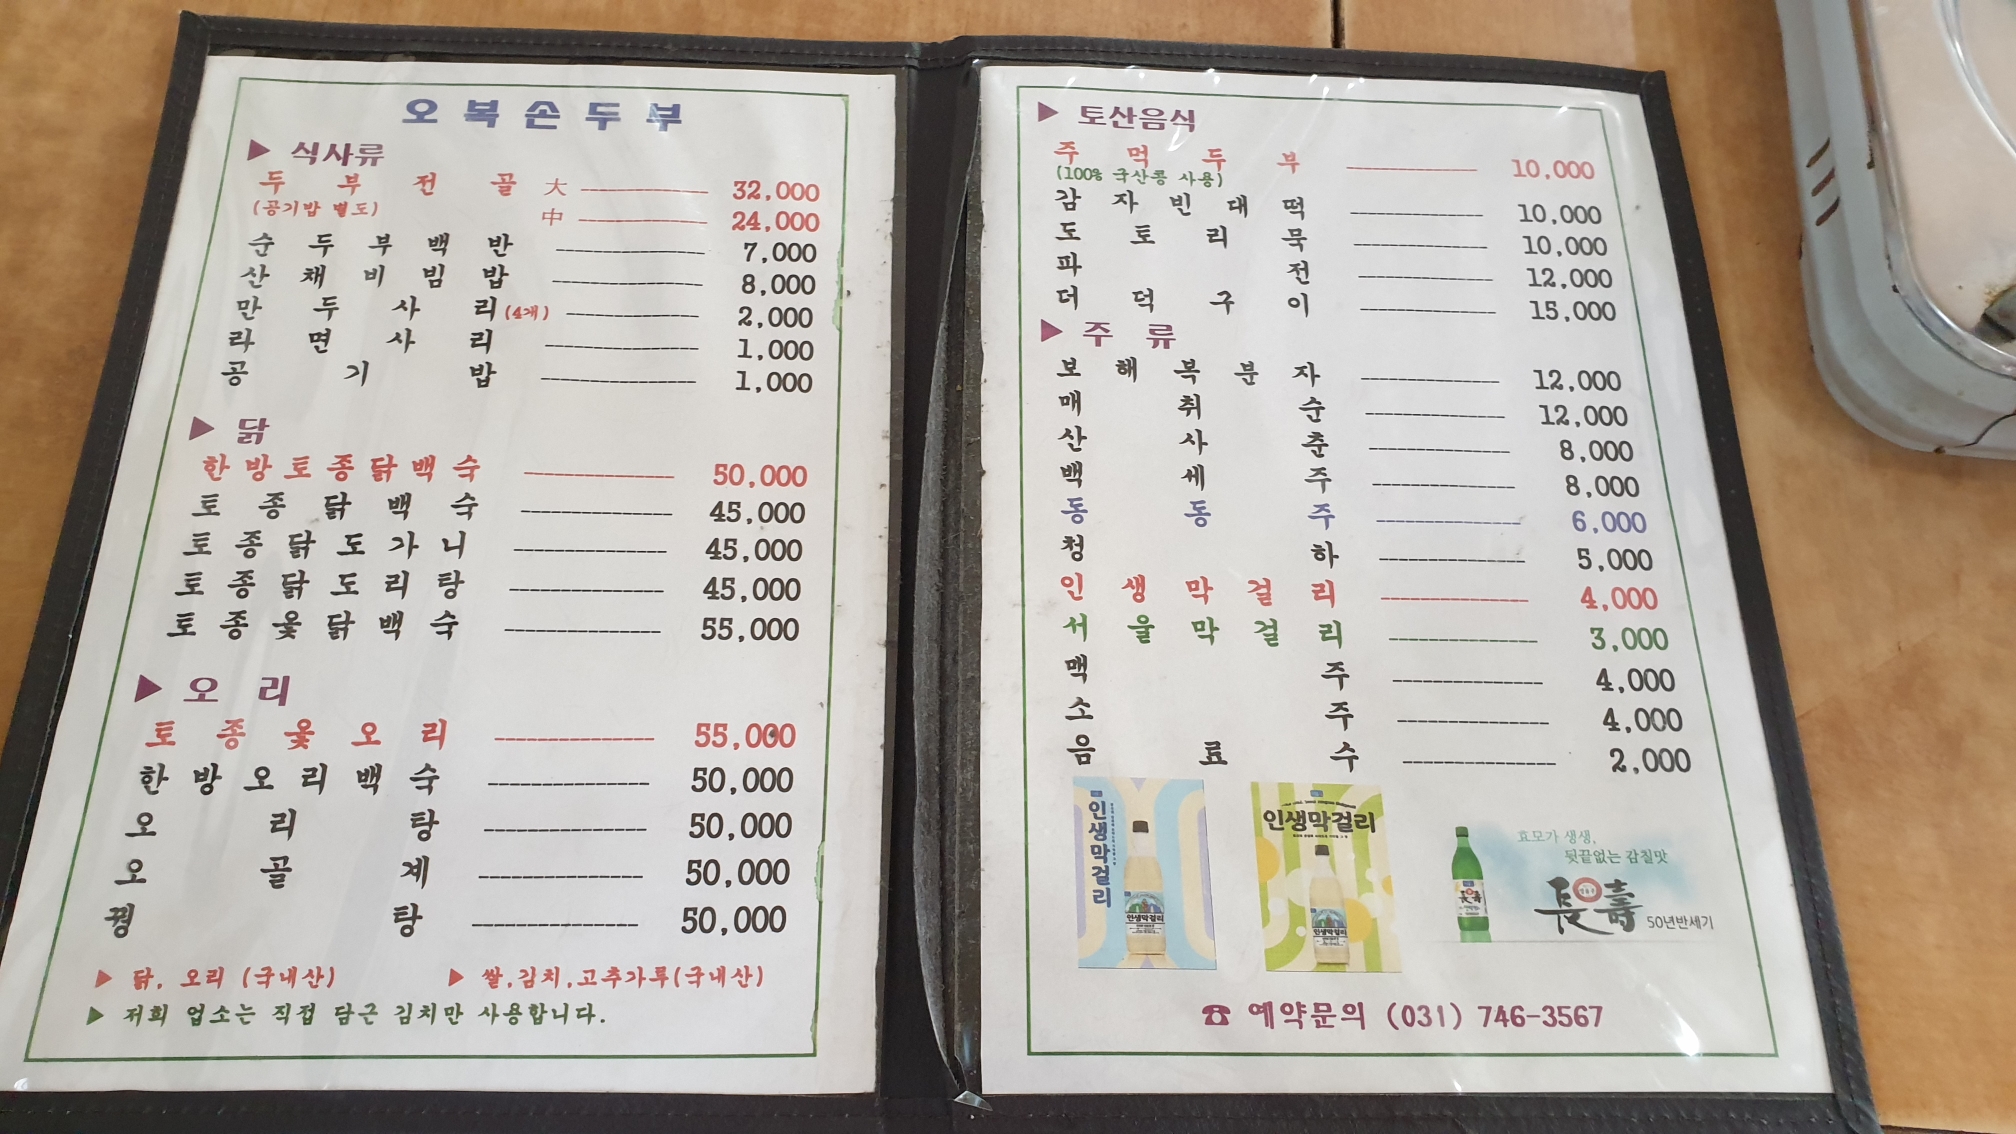 오복손두부
▶ 식사류
두부전골 大 32,000
(공기밥 별도) 中 24,000
순두부백반 7,000
산채비빔밥 8,000
만두사리(4개) 2,000
라면사리 1,000
공기밥 1,000
▶ 닭
한방토종닭백숙 50,000
토종닭백숙 45,000
토종닭도가니 45,000
토종닭도리탕 45,000
토종옻닭백숙 55,000
▶ 오리
토종옻오리 55,000
한방오리백숙 50,000
오리탕 50,000
오골계 50,000
꿩탕 50,000
▶ 닭, 오리 (국내산) ▶ 쌀,김치,고추가루(국내산)
▶ 저희 업소는 직접 담근 김치만 사용합니다.
▶ 토산음식
주먹두부 10,000
(100% 국산콩 사용)
감자빈대떡 10,000
도토리묵 10,000
파전 12,000
더덕구이 15,000
▶ 주류
보해복분자 12,000
매취순 12,000
산사춘 8,000
백세주 8,000
동동주 6,000
청하 5,000
인생막걸리 4,000
서울막걸리 3,000
맥주 4,000
소주 4,000
음료수 2,000
인생막걸리
인생막걸리
인생막걸리
인생막걸리
효모가 생생,
뒷끝없는 감칠맛
長壽 50년반세기
長壽
☎ 예약문의 (031) 746-3567